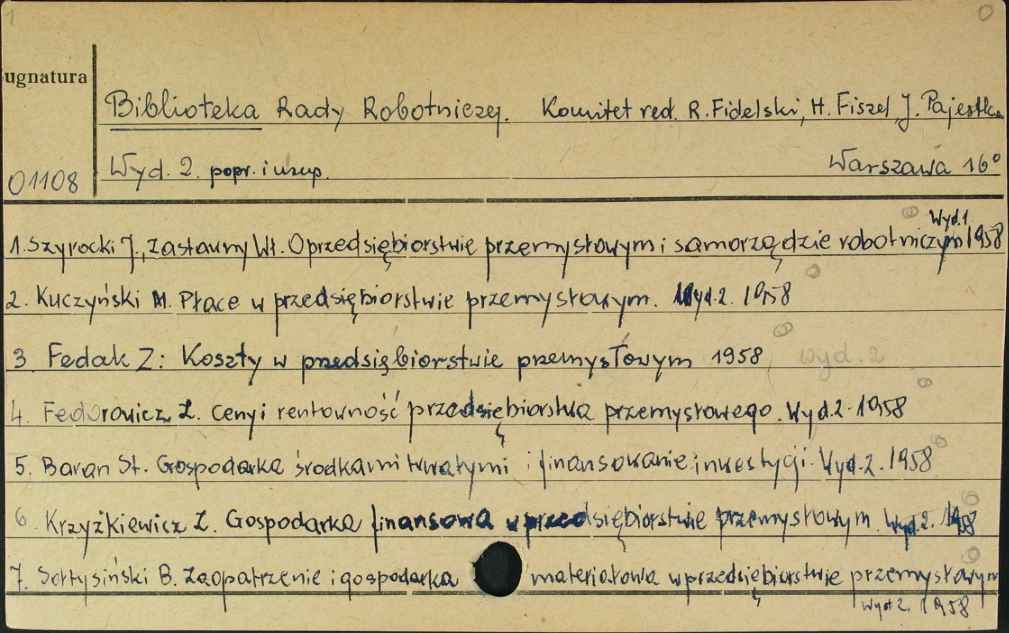 1 0
ugnatura
Biblioteka Rady Robotniczej. Komitet red. R. Fidelski, H. Fiszel, J. Pajestka
01108 Wyd. 2. popr. i uzup. Warszawa 16°
Wyd. 1
1. Szyrocki J., Zastawny Wł. O przedsiębiorstwie przemysłowym i samorządzie robotniczym 1958
2. Kuczyński M. Płace w przedsiębiorstwie przemysłowym. Wyd. 2. 1958
3 Fedak Z: Koszty w przedsiębiorstwie przemysłowym 1958 wyd. 2
4. Fedorowicz Z. Ceny i rentowność przedsiębiorstwa przemysłowego. Wyd. 2. 1958
5. Baran St. Gospodarka środkami trwałymi i finansowanie inwestycji. Wyd. 2. 1958
6. Krzyżkiewicz Z. Gospodarka finansowa w przedsiębiorstwie przemysłowym. Wyd. 2. 1958
7. Sołtysiński B. Zaopatrzenie i gospodarka materiałowa w przedsiębiorstwie przemysłowym
Wyd 2. 1958